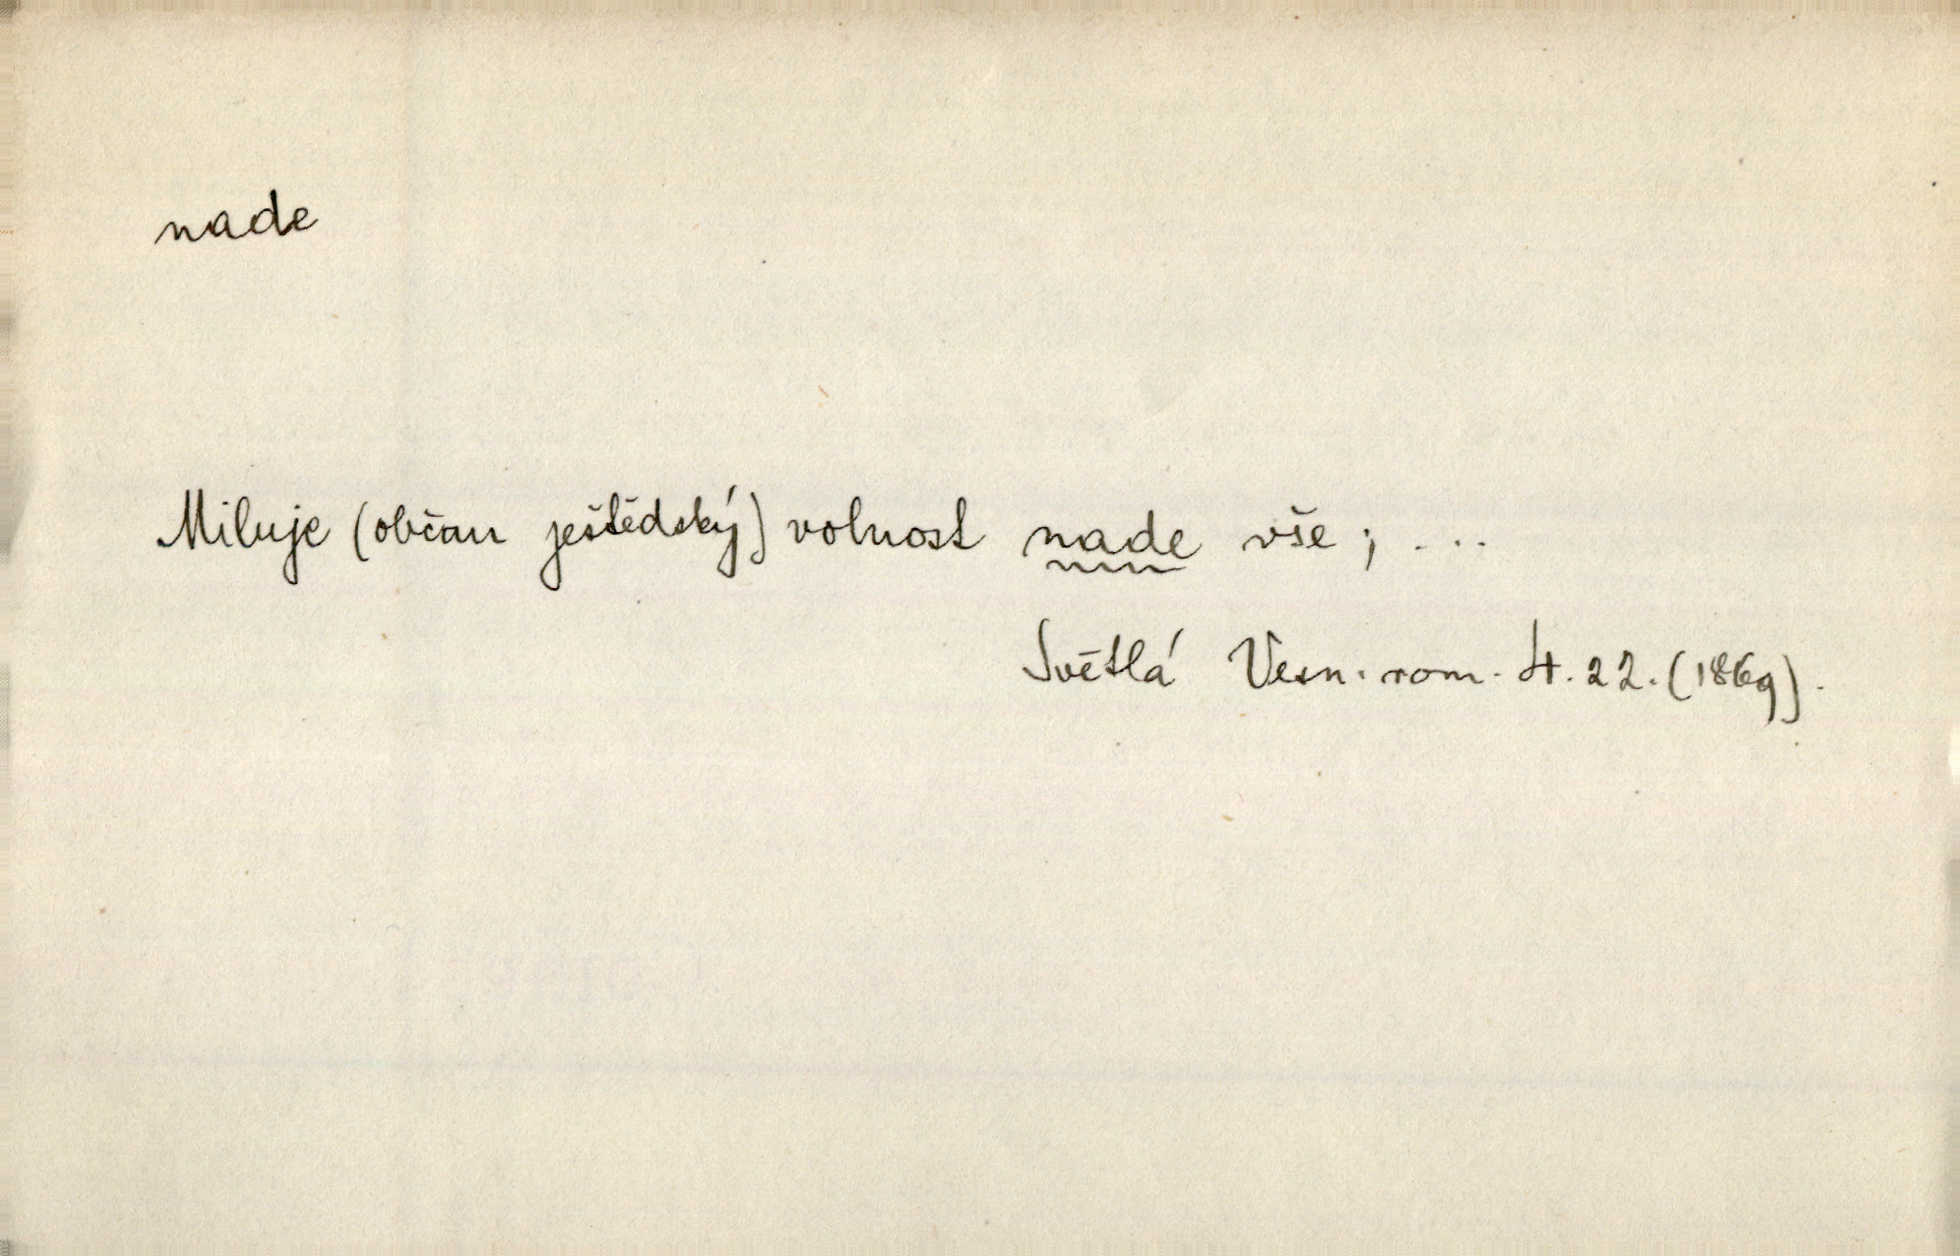 nade
Miluje (občan ještědský) volnost nade vše; ...
Světlá Vesn. rom. 4. 22. (1869).